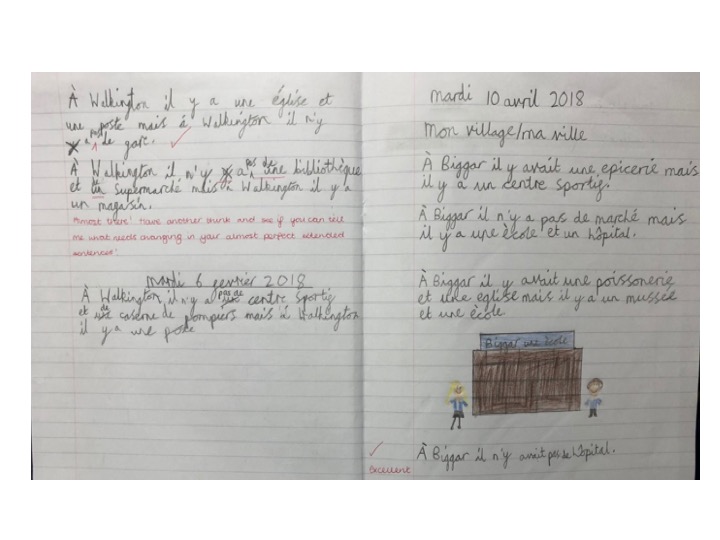 À Walkington il y a une église et
une poste mais á Walkington il n'y
a pas de gare.
À Walkington il n'y a pas de une bibliothèque
et un de supermarché mais à Walkington il y a
un magasin.
Almost there! Have another think and see if you can tell
me what needs changing in your almost perfect extended
sentences!
mardi 6 fevrier 2018
À Walkington il n'y a pas de centre sportif
et de caserne de pompiers mais á Walkington
il y a une poste
mardi 10 avril 2018
Mon village/ma ville
À Biggar il y avait une epicerié mais
il y a un centre sportif.
À Biggar il n'y a pas de marché mais
il y a une école et un hôpital.
À Biggar il y avait une poissonerie
et une eglise mais il y a un mussée
et une école.
Biggar une école
À Biggar il n'y avait pas de hôpital.
Excellent